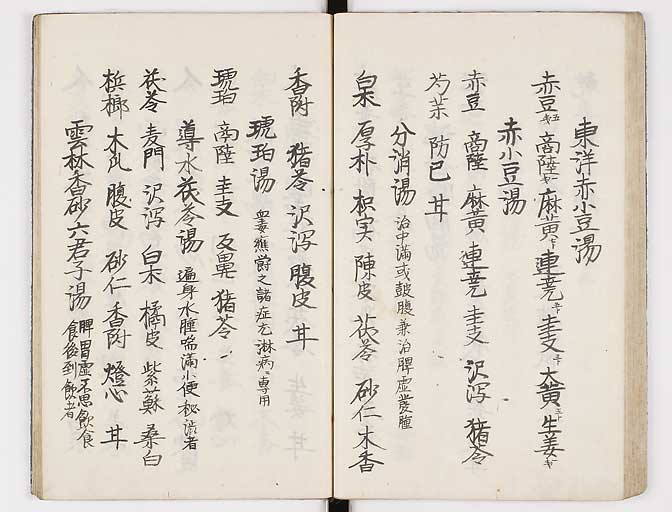 東洋赤小豆湯
赤豆 商陸 麻黄 連翹 圭支 大黄 生姜
赤小豆湯
赤豆 商陸 麻黄 連翹 圭支 沢瀉 猪苓
芍薬 防已 甘
分消湯 治中満或鼓脹兼治脾虚發腫
白朮 厚朴 枳実 陳皮 茯苓 砂仁 木香
香附 猪苓 沢瀉 腹皮 甘
琥珀湯 血毒癰欝之諸症尤淋病専用
琥珀 商陸 圭支 反鼻 猪苓
導水茯苓湯 遍身水腫喘満小便秘渋者
茯苓 麦門 沢瀉 白朮 橘皮 紫蘇 桑白
梹榔 木瓜 腹皮 砂仁 香附 燈心 甘
雲林香砂六君子湯 脾胃虚不思飲食
食後到飲者